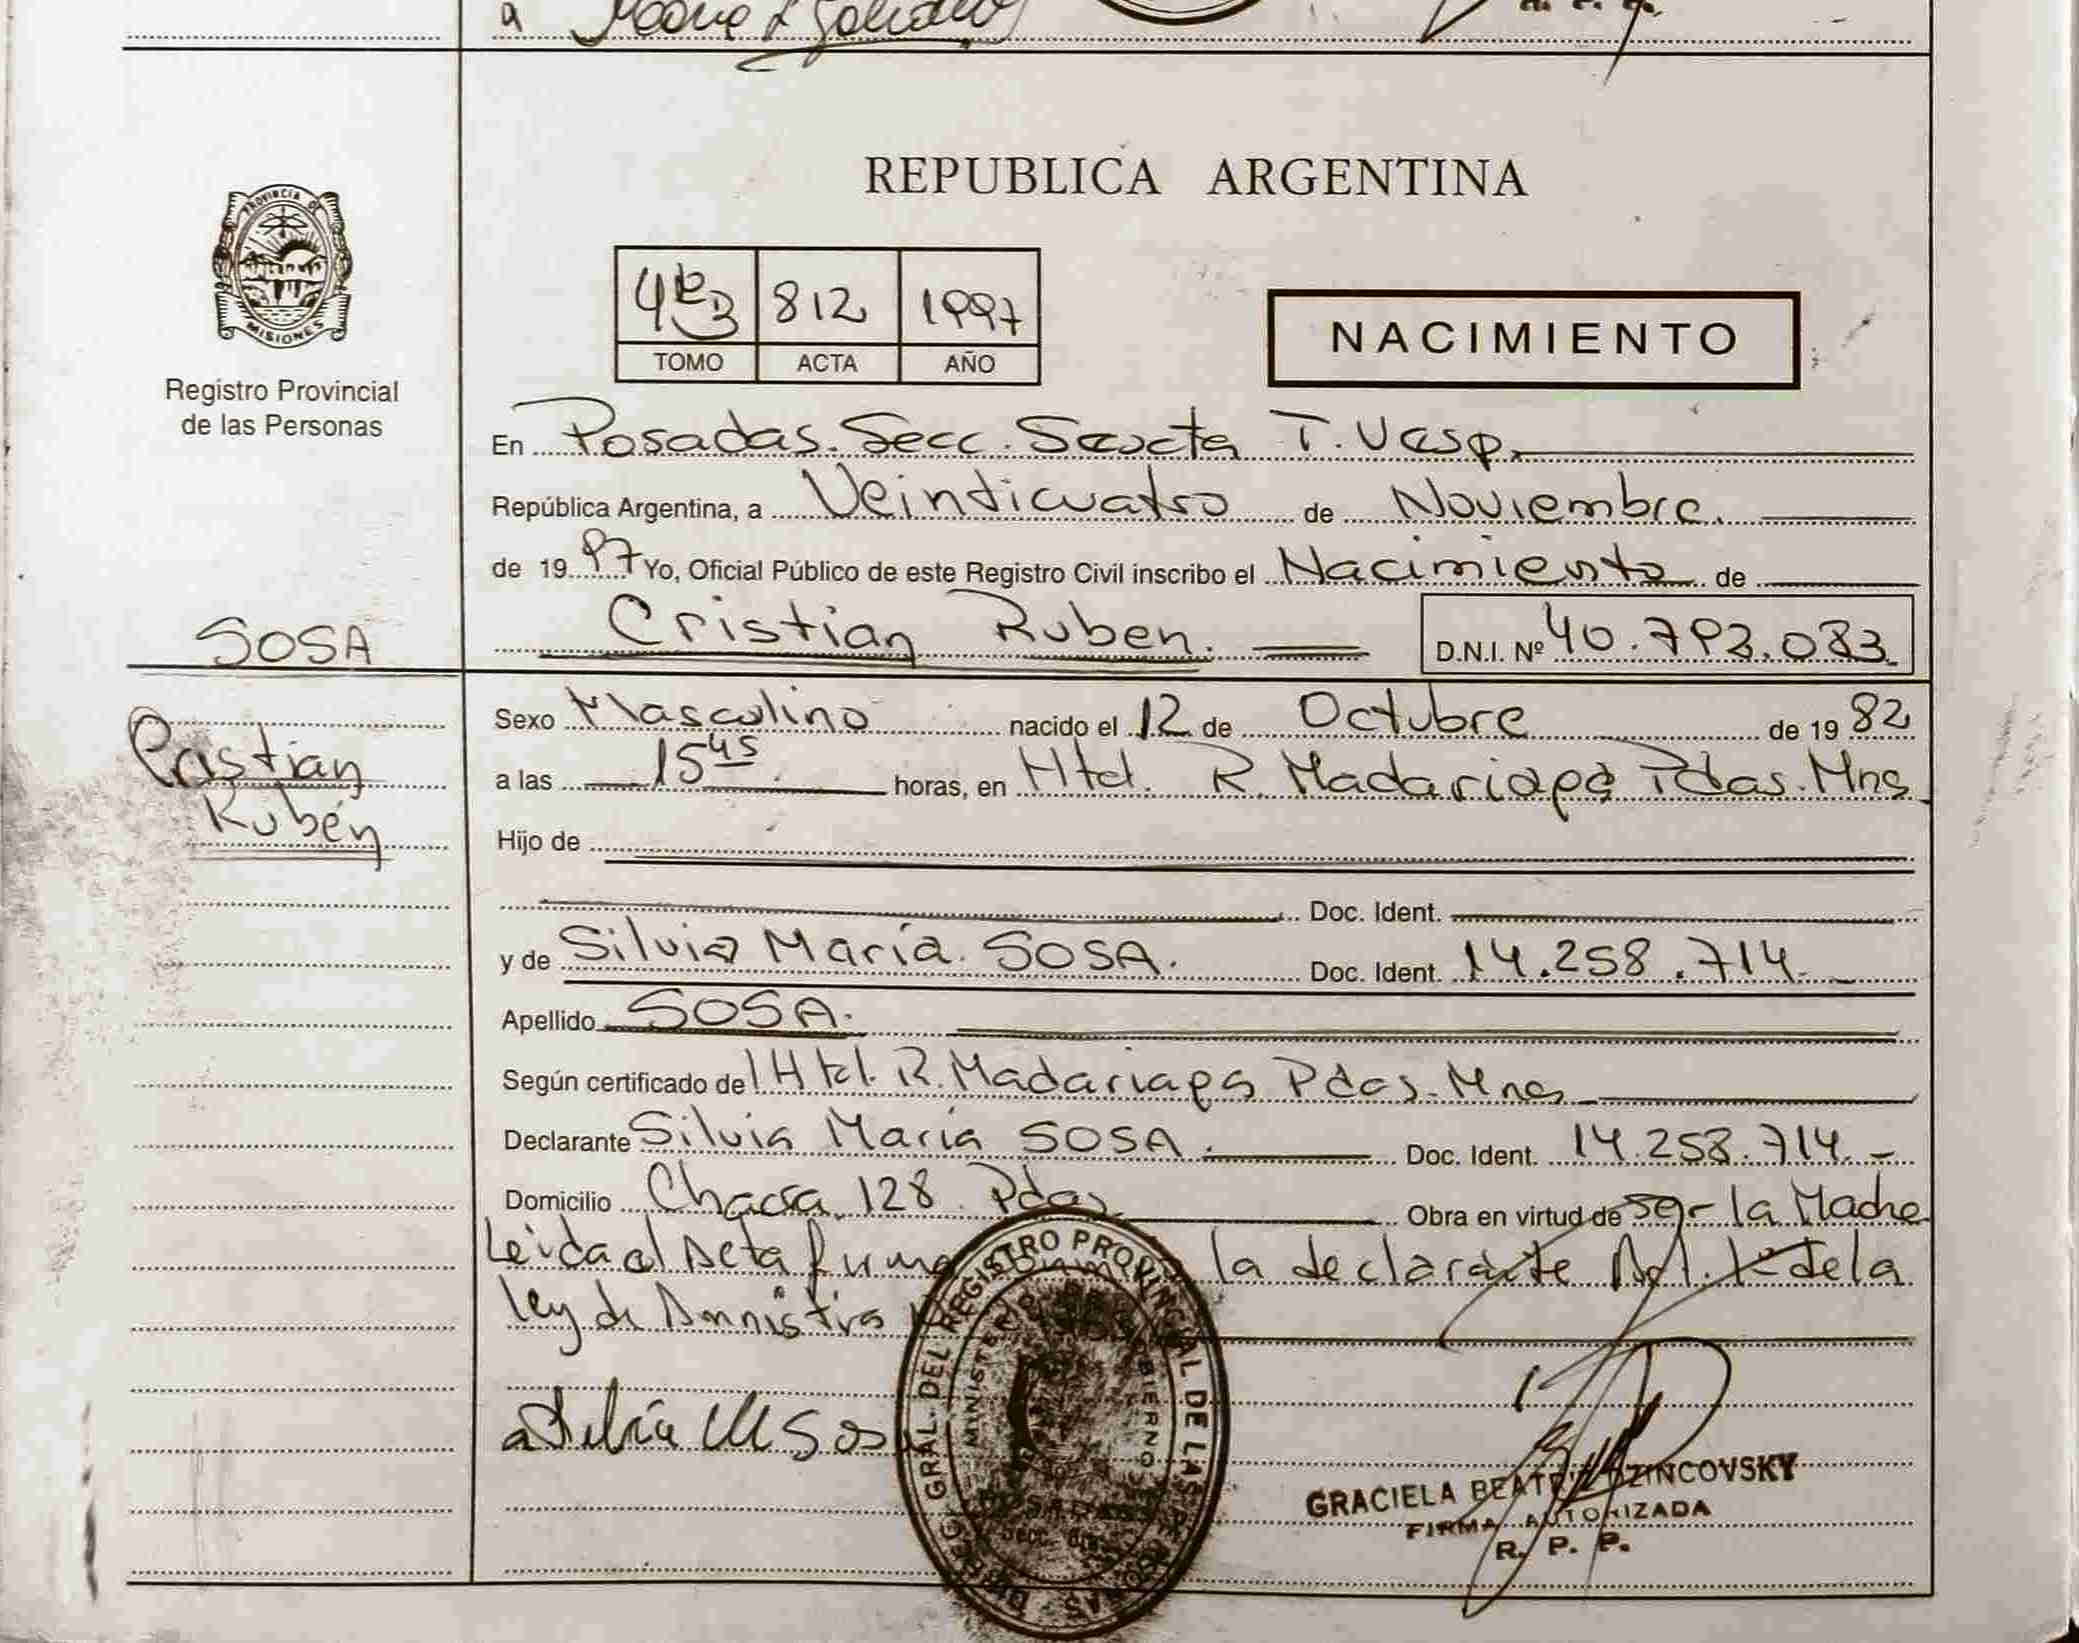 a
REPUBLICA ARGENTINA
PROVINCIA DE
MISIONES
Registro Provincial
de las Personas
812 1997
TOMO ACTA AÑO
NACIMIENTO
En Posadas. Secc. Sexta T. Vesp.
República Argentina, a Veinticuatro de Noviembre.
de 1997 Yo, Oficial Público de este Registro Civil inscribo el Nacimiento de
SOSA
Cristian Ruben. D.N.I. Nº 40.793.083
Cristian
Rubén
Sexo Masculino nacido el 12 de Octubre de 1982
a las 15 45 horas, en Htal. R. Madariaga Pdas. Mnes
Hijo de
Doc. Ident.
y de Silvia María SOSA. Doc. Ident. 14.258.714.
Apellido SOSA.
Según certificado del Htal. R. Madariaga Pdas. Mnes
Declarante Silvia María SOSA. Doc. Ident. 14.258.714.-
Domicilio Chacra 128 Pdas Obra en virtud de ser la Madre
Leida el Acta firma la declarante de la
ley de Amnistia
a Silvia M Sosa
DIREC. GRAL. DEL REGISTRO PROVINCIAL DE LAS PERSONAS
MINISTERIO DE GOBIERNO
POSADAS
GRACIELA BEATRIZ DZINCOVSKY
FIRMA AUTORIZADA
R. P. P.